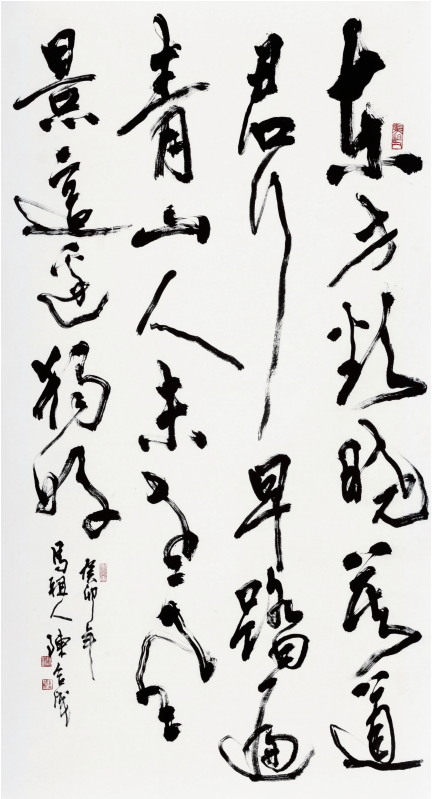 東方欲曉莫道
君行早踏遍
青山人未老風
景這邊獨好
癸卯年
馬祖人陳合成